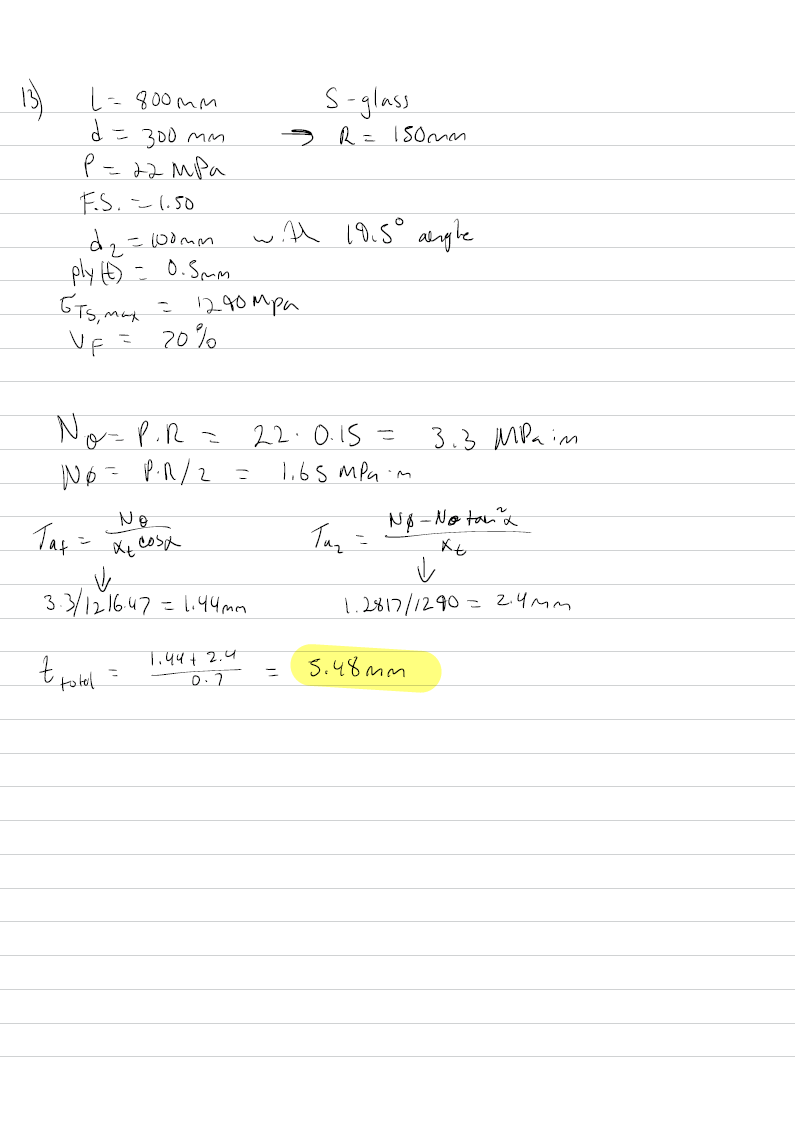 13) L = 800mm S-glass
d = 300 mm → R = 150mm
P = 22 MPa
F.S. = 1.50
d₂ = 100mm with 19.5° aengle
ply(t) = 0.5mm
σTS,max = 1290Mpa
VF = 70%
Nθ = P.R = 22 · 0.15 = 3.3 MPa·m
Nϕ = P.R/2 = 1.65 MPa·m
Tαf = Nθ / Xt cosα Tα₂ = Nϕ - Nθ tan²α / Xt
↓ ↓
3.3/1216.47 = 1.44mm 1.2817/1290 = 2.4mm
t total = 1.44 + 2.4 / 0.7 = 5.48mm